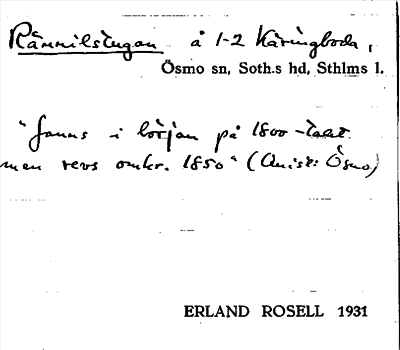 Rännilstugan å 1-2 Käringboda,
Ösmo sn, Soth.s hd, Sthlms l.
"fanns i början på 1800-talet
men revs omkr. 1850" (Ösmo)
ERLAND ROSELL 1931